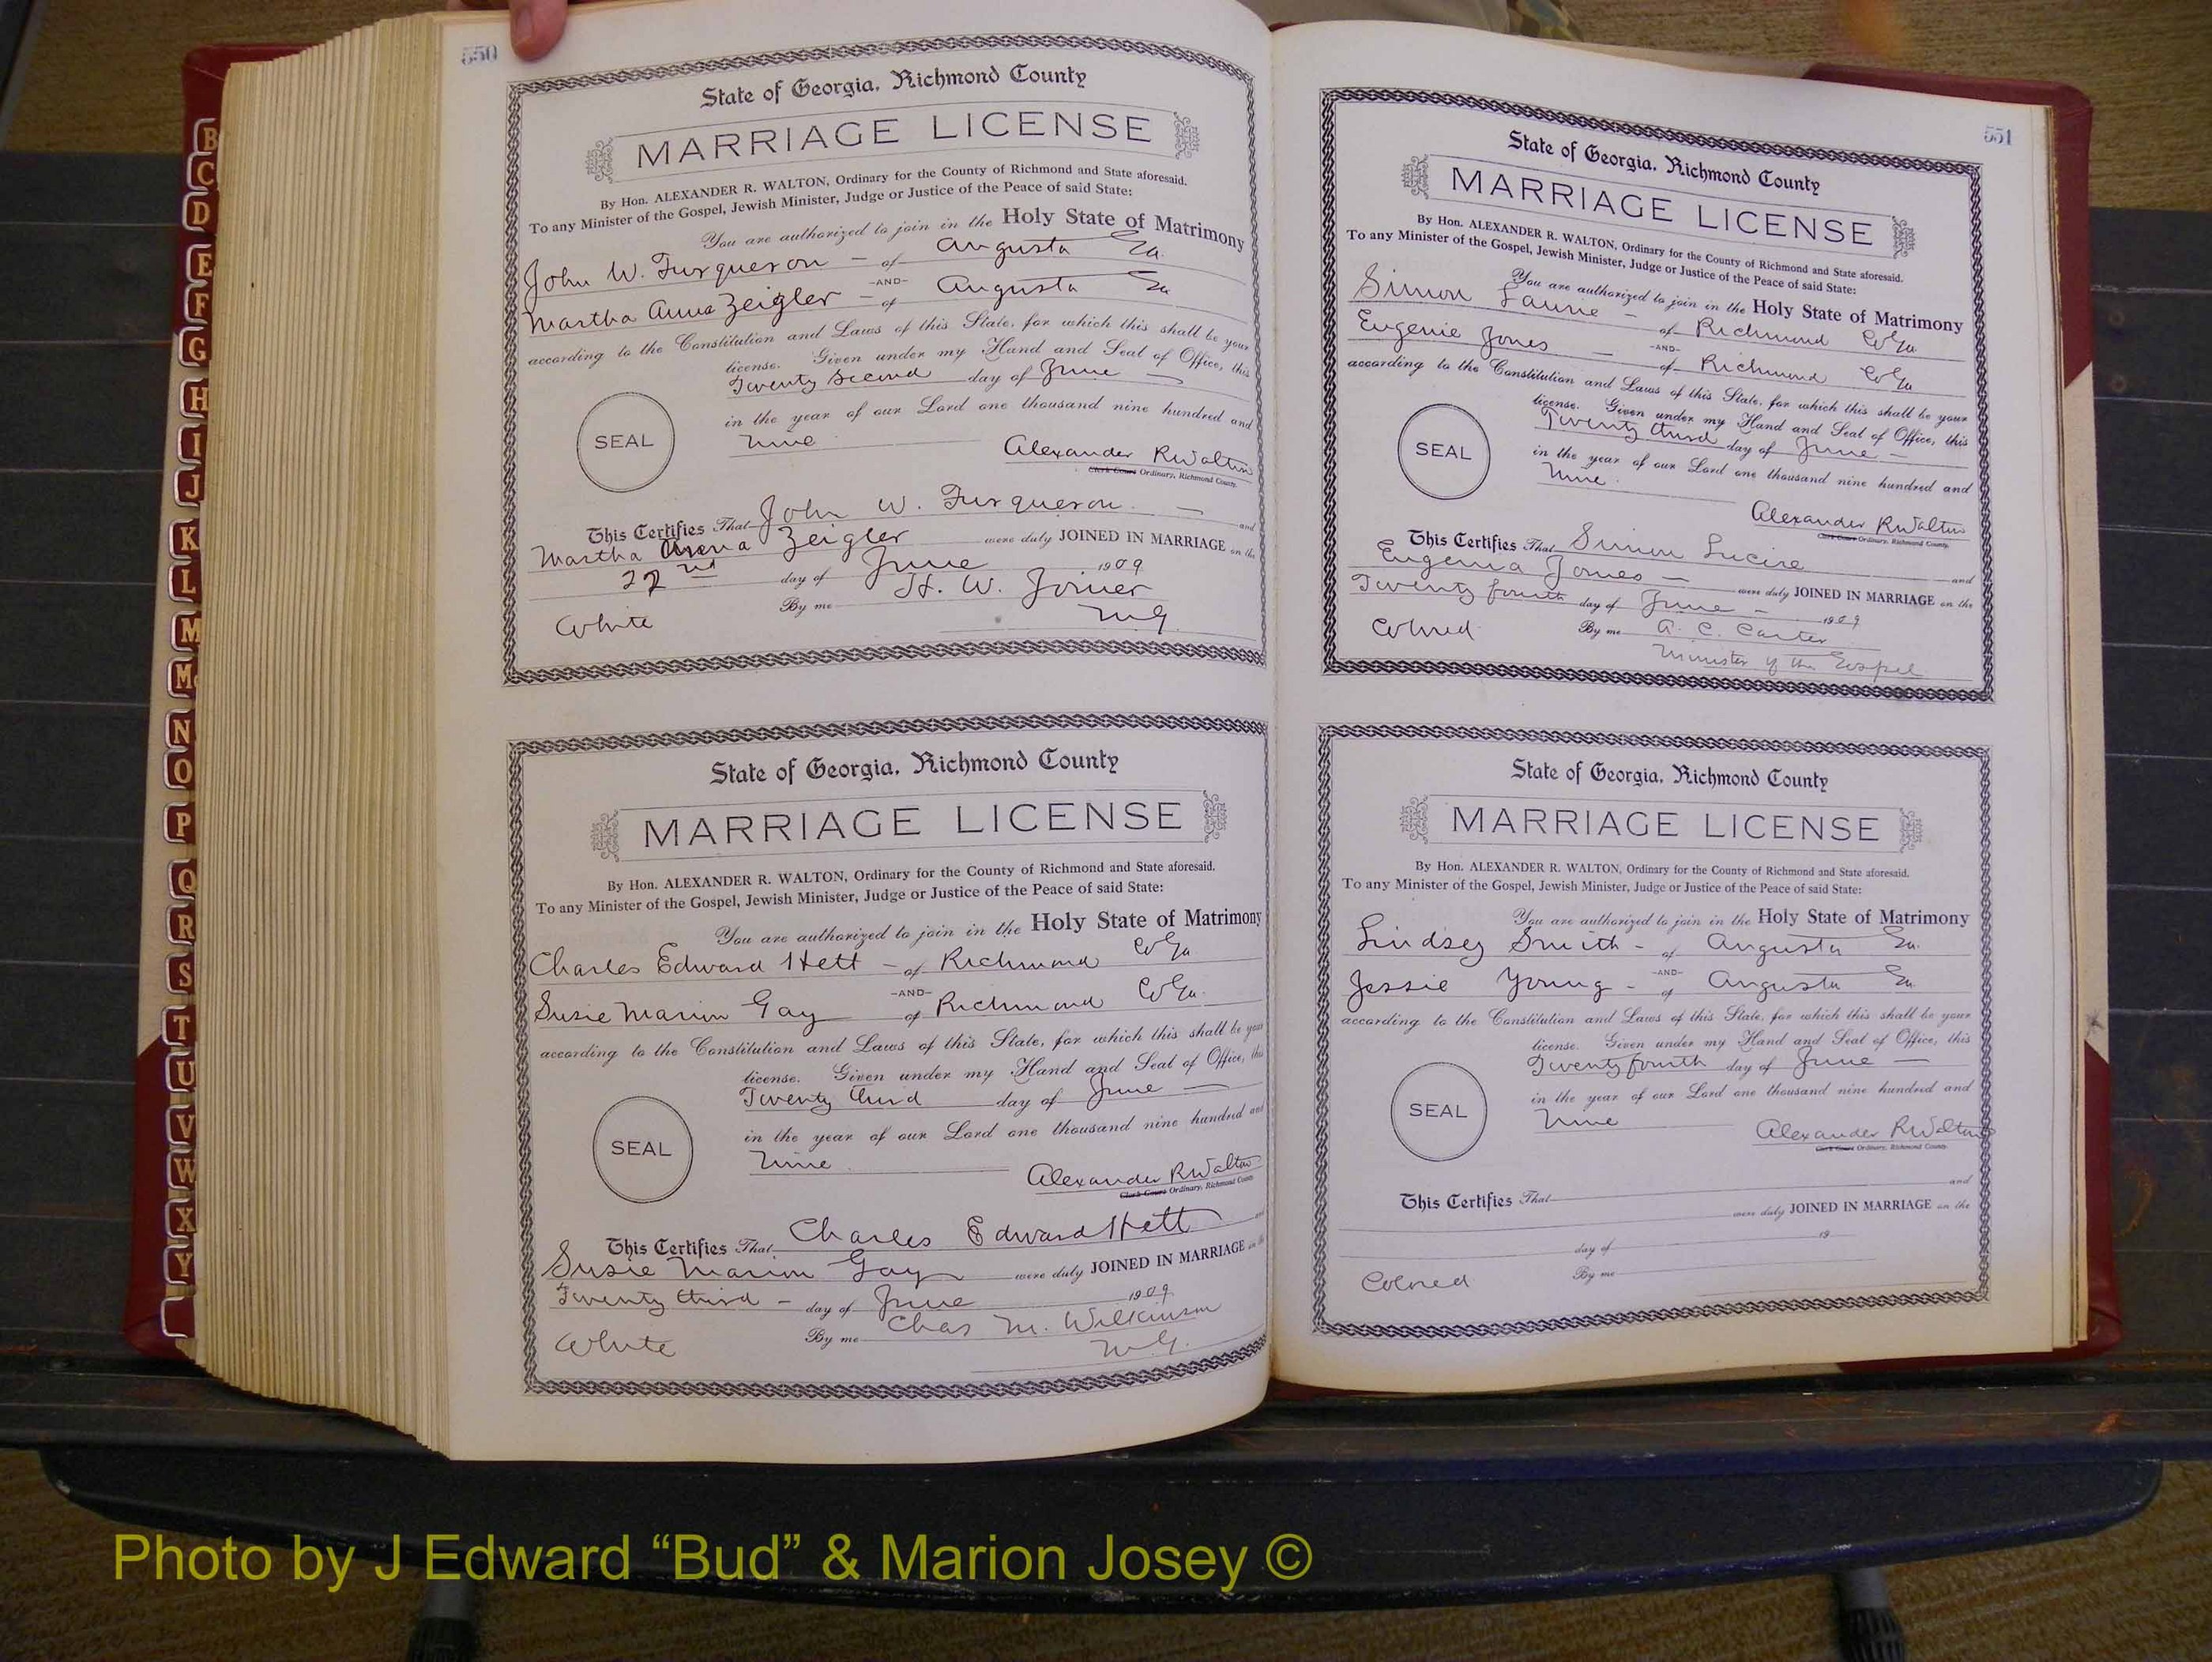 550
State of Georgia, Richmond County
MARRIAGE LICENSE
By Hon. ALEXANDER R. WALTON, Ordinary for the County of Richmond and State aforesaid.
To any Minister of the Gospel, Jewish Minister, Judge or Justice of the Peace of said State:
You are authorized to join in the Holy State of Matrimony
John W. Furqueron - of Augusta Ga.
-AND-
Martha Anna Zeigler - of Augusta Ga
according to the Constitution and Laws of this State, for which this shall be your
license. Given under my Hand and Seal of Office, this
Twenty Second day of June
in the year of our Lord one thousand nine hundred and
nine
SEAL
Alexander R Walton
Clerk Court Ordinary, Richmond County.
This Certifies That John W. Furqueron and
Martha Zeigler were duly JOINED IN MARRIAGE on the
22nd day of June 1909
By me H. W. Joiner
White M.G.
State of Georgia, Richmond County
MARRIAGE LICENSE
By Hon. ALEXANDER R. WALTON, Ordinary for the County of Richmond and State aforesaid.
To any Minister of the Gospel, Jewish Minister, Judge or Justice of the Peace of said State:
You are authorized to join in the Holy State of Matrimony
Charles Edward Hett - of Richmond Co Ga
-AND-
Susie Marion Gay of Richmond Co Ga.
according to the Constitution and Laws of this State, for which this shall be your
license. Given under my Hand and Seal of Office, this
Twenty third day of June
in the year of our Lord one thousand nine hundred and
nine
SEAL
Alexander R Walton
Clerk Court Ordinary, Richmond County
This Certifies That Charles Edward Hett and
Susie Marion Gay were duly JOINED IN MARRIAGE on the
Twenty third - day of June 1909
By me Chas M. Wilkinson
White M.G.
551
State of Georgia, Richmond County
MARRIAGE LICENSE
By Hon. ALEXANDER R. WALTON, Ordinary for the County of Richmond and State aforesaid.
To any Minister of the Gospel, Jewish Minister, Judge or Justice of the Peace of said State:
You are authorized to join in the Holy State of Matrimony
Simon - of Richmond Co Ga
-AND-
Eugenie Jones - of Richmond Co Ga
according to the Constitution and Laws of this State, for which this shall be your
license. Given under my Hand and Seal of Office, this
Twenty third day of June -
in the year of our Lord one thousand nine hundred and
nine
SEAL
Alexander R Walton
Clerk Court Ordinary, Richmond County.
This Certifies That Simon and
Eugenia Jones - were duly JOINED IN MARRIAGE on the
Twenty fourth day of June - 1909
By me A. C. Carter
Colored Minister of the Gospel
State of Georgia, Richmond County
MARRIAGE LICENSE
By Hon. ALEXANDER R. WALTON, Ordinary for the County of Richmond and State aforesaid.
To any Minister of the Gospel, Jewish Minister, Judge or Justice of the Peace of said State:
You are authorized to join in the Holy State of Matrimony
Lindsey Smith - of Augusta Ga.
-AND-
Jessie Young - of Augusta Ga.
according to the Constitution and Laws of this State, for which this shall be your
license. Given under my Hand and Seal of Office, this
Twenty fourth day of June
in the year of our Lord one thousand nine hundred and
nine
SEAL
Alexander R Walton
Clerk Court Ordinary, Richmond County
This Certifies That and
were duly JOINED IN MARRIAGE on the
day of 19
Colored By me
B
C
D
E
F
G
H
I
J
K
L
M
Mc
N
O
P
Q
R
S
T
U
V
W
X
Y
Photo by J Edward “Bud” & Marion Josey ©